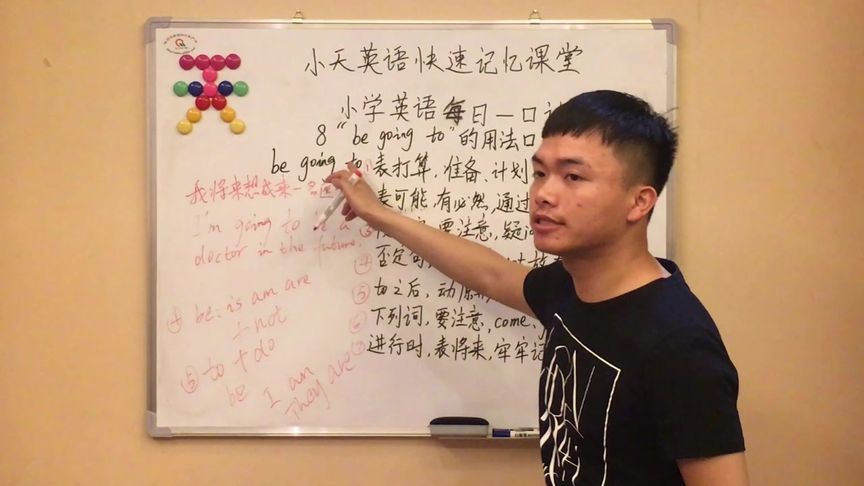 小天英语快速记忆课堂
小学英语每日一口
8 "be going to"的用法口
be going to ①表打算,准备、计划
表可能,有必然,通过
③ 要注意,疑问
④ 否定句
⑤ to之后,动原形
⑥ 下列词,要注意,come,
⑦ 进行时,表将来,牢牢记
我将来想成来一名医
I'm going to be a
doctor in the future.
④ be: is am are
+ not
⑤ to + do
be I am
They are